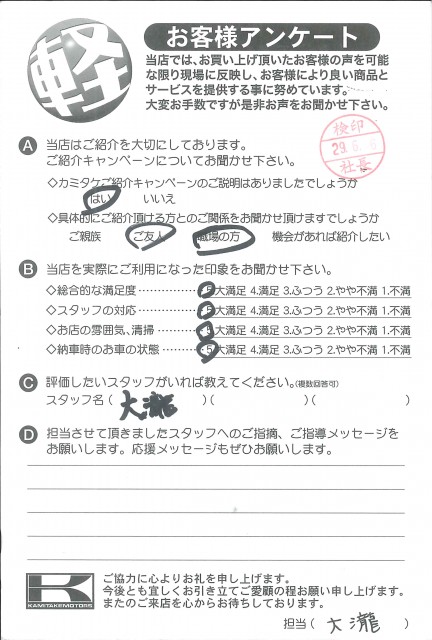 軽
お客様アンケート
当店では、お買い上げ頂いたお客様の声を可能
な限り現場に反映し、お客様により良い商品と
サービスを提供する事に努めています。
大変お手数ですが是非お声をお聞かせ下さい。
検印
29.6.
社長
A 当店はご紹介を大切にしております。
ご紹介キャンペーンについてお聞かせ下さい。
◇カミタケご紹介キャンペーンのご説明はありましたでしょうか
はい いいえ
◇具体的にご紹介頂ける方とのご関係をお聞かせ頂けますでしょうか
ご親族 ご友人 職場の方 機会があれば紹介したい
B 当店を実際にご利用になった印象をお聞かせ下さい。
◇総合的な満足度 5.大満足 4.満足 3.ふつう 2.やや不満 1.不満
◇スタッフの対応 5.大満足 4.満足 3.ふつう 2.やや不満 1.不満
◇お店の雰囲気、清掃 5.大満足 4.満足 3.ふつう 2.やや不満 1.不満
◇納車時のお車の状態 5.大満足 4.満足 3.ふつう 2.やや不満 1.不満
C 評価したいスタッフがいれば教えてください。(複数回答可)
スタッフ名(大瀧)( )( )
D 担当させて頂きましたスタッフへのご指摘、ご指導メッセージを
お願いします。応援メッセージもぜひお願いします。
K
KAMITAKE MOTORS
ご協力に心よりお礼を申し上げます。
今後とも宜しくお引き立てご愛顧の程お願い申し上げます。
またのご来店を心からお待ちしております。
担当(大瀧)